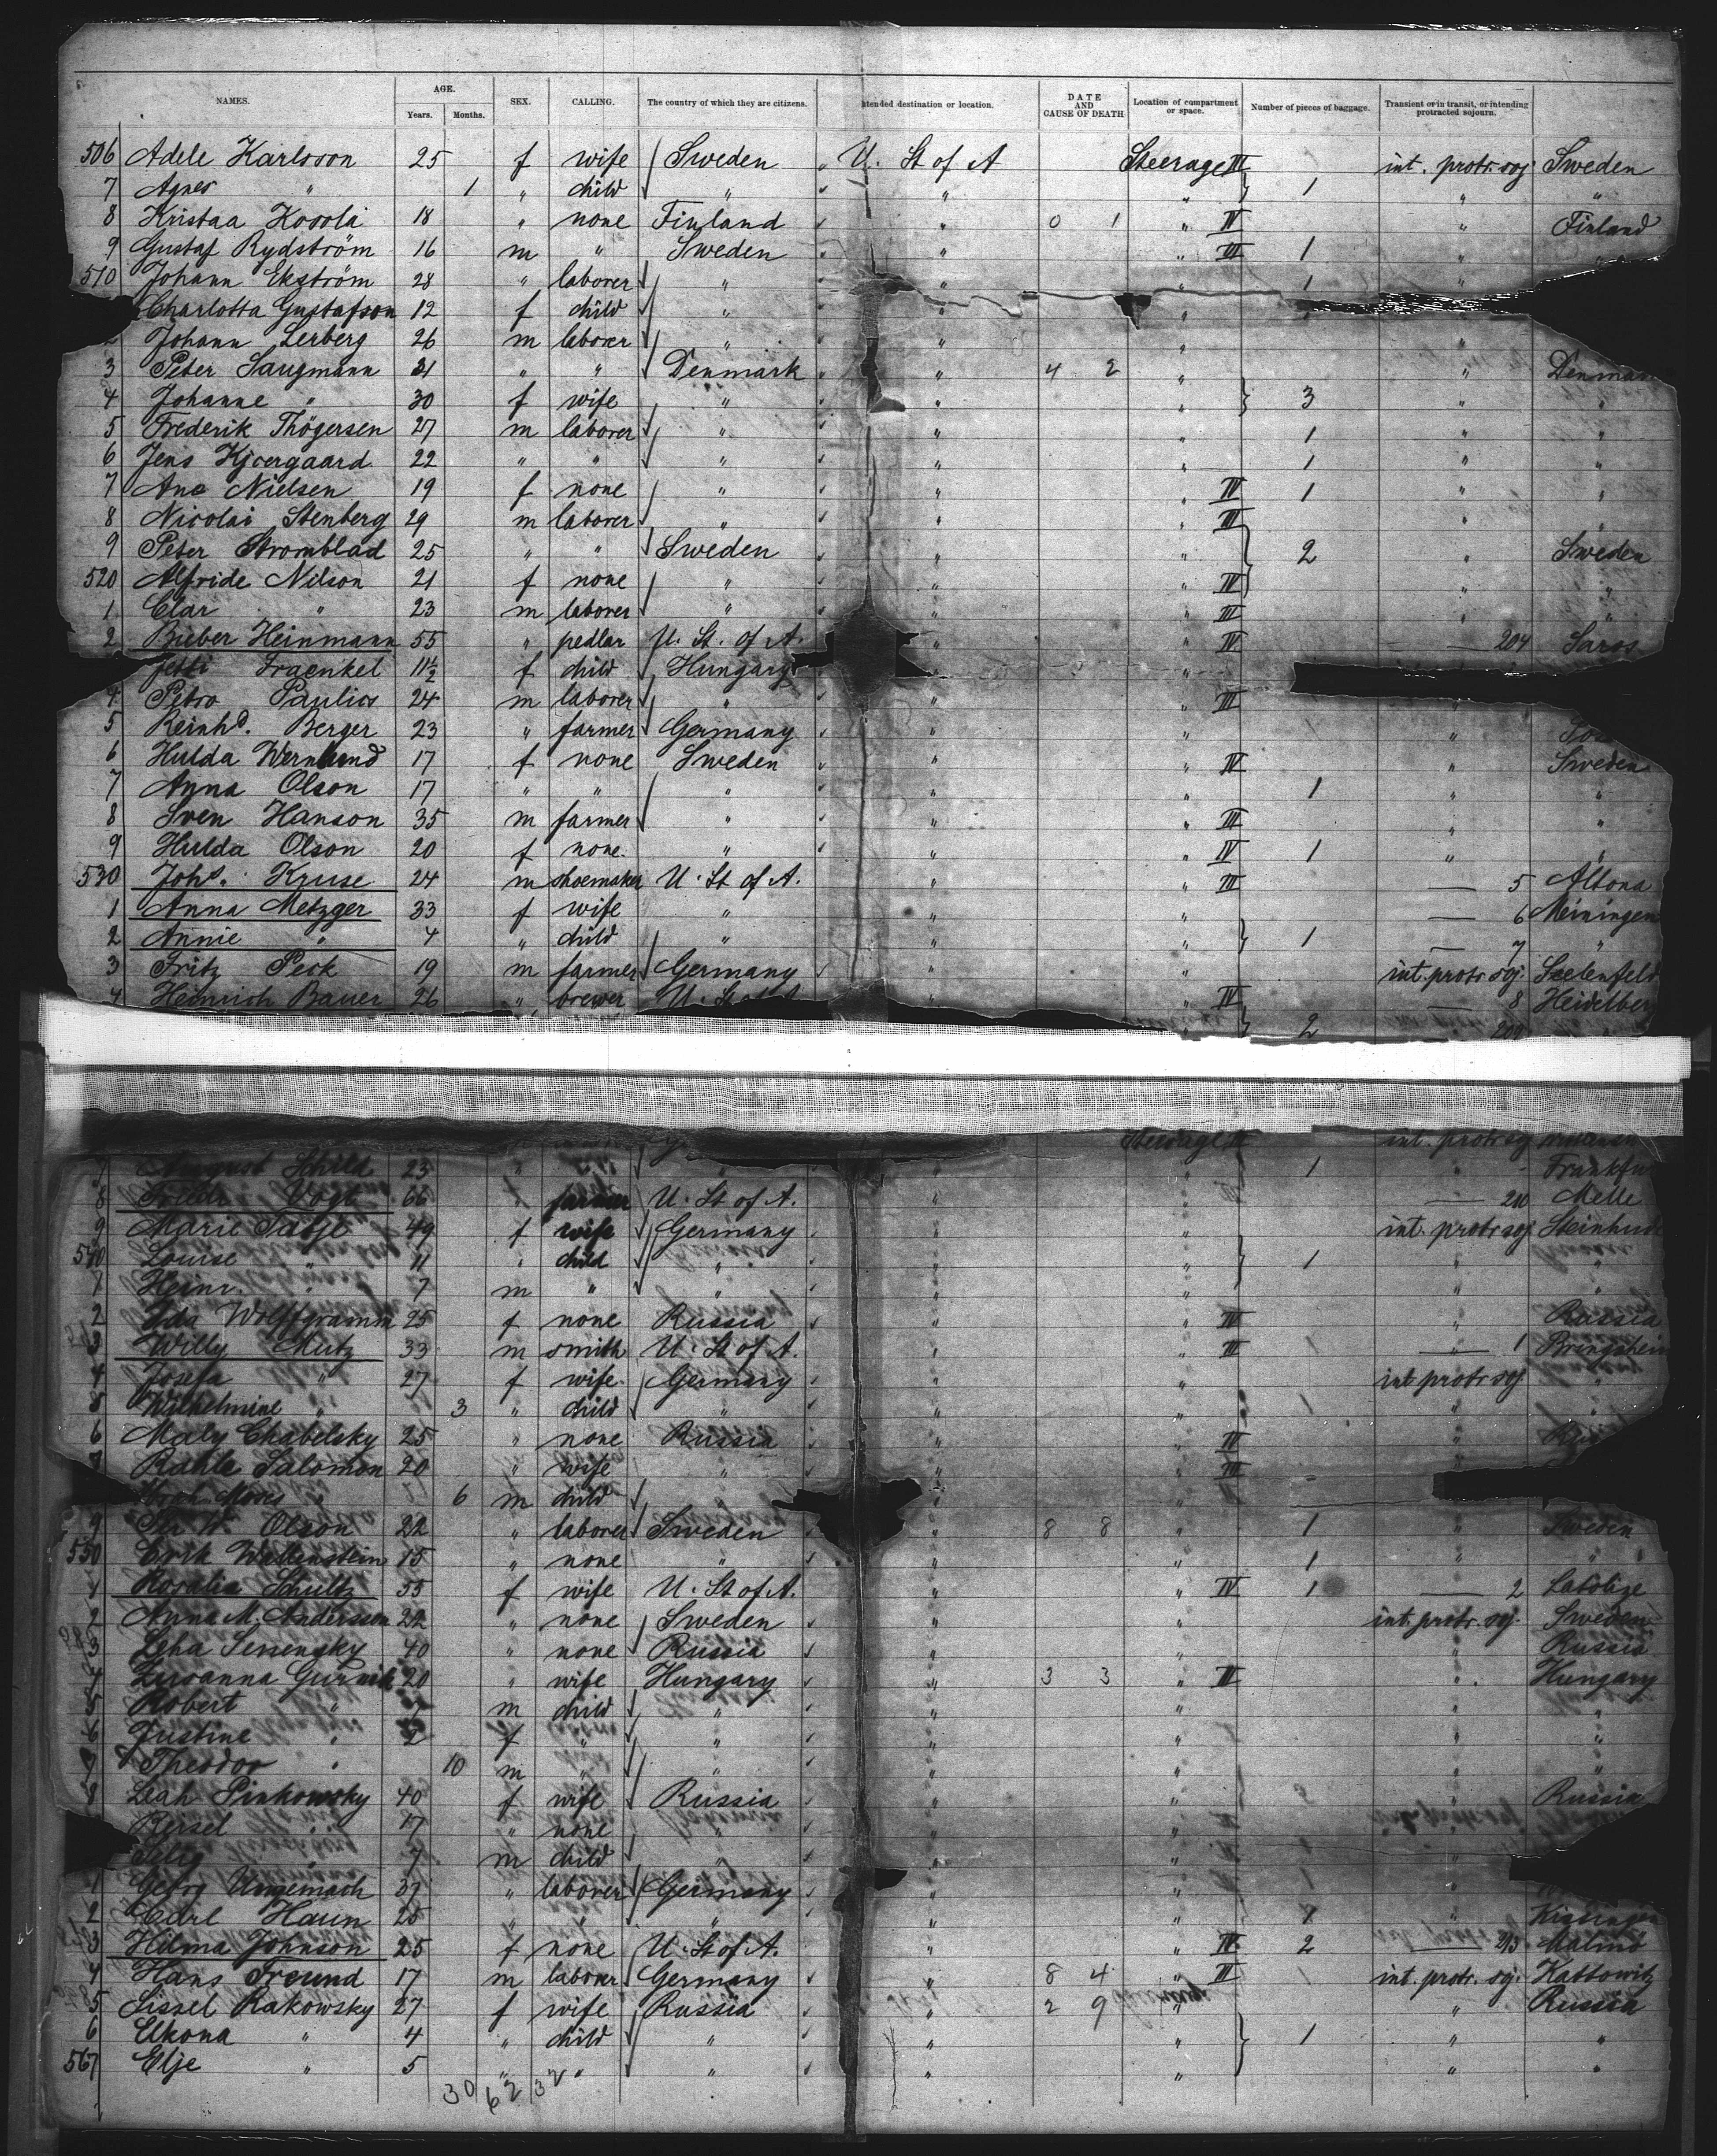 NAMES. AGE. Years. Months. SEX. CALLING. The country of which they are citizens. ntended destination or location. DATE AND CAUSE OF DEATH Location of compartment or space. Number of pieces of baggage. Transient or in transit, or intending protracted sojourn.
506 Adele Karlsson 25 f wife Sweden " U. St of A Steerage III int. protr. soj Sweden
7 Agnes " 1 " child " " " 1 " "
8 Kristaa Kosola 18 " none Finland " 0 1 " IV " Finland
9 Gustaf Rydström 16 m " Sweden " " III 1 "
510 Johann Ekström 28 " laborer " " " 1 "
Charlotta Gustafson 12 f child " " "
2 Johann Lerberg 26 m laborer " " " "
3 Peter Saugmann 31 " " Denmark " 4 2 " " Denmar
4 Johanne " 30 f wife " " " 3 " "
5 Frederik Thögersen 27 m laborer " " " 1 " "
6 Jens Kjoergaard 22 " " " " " 1 " "
7 Ane Nielsen 19 f none " " " IV 1 " "
8 Nicolai Stenberg 29 m laborer " " " III " "
9 Peter Stromblad 25 " " Sweden " " 2 " Sweden
520 Alfride Nilson 21 f none " " " IV " "
1 Clar " 23 m laborer " " " III " "
2 Bieber Heinmann 55 " pedlar U. St. of A. " " IV — 204 Saros
Jetti Fraenkel 11½ f child Hungary " "
4 Petro Paulics 24 m laborer " " " III "
5 Reinhd. Berger 23 " farmer Germany " " "
6 Hulda Wernlund 17 f none Sweden " " IV " Sweden
7 Anna Olson 17 " " " " " 1 " "
8 Sven Hanson 35 m farmer " " " III " "
9 Hulda Olson 20 f none. " " " IV 1 " "
530 Johs. Kruse 24 m shoemaker U. St of A. " " III — 5 Altona
1 Anna Metzger 33 f wife " " " — 6 Meiningen
2 Annie " 4 " child " " " 1 — 7 "
3 Fritz Peck 19 m farmer Germany " " int. protr. soj. Seelenfeld
4 Heinrich Bauer 26 " brewer U. St of A " IV — 8 Heidelber
2 209
Steerage int. protr. soj
7 August Schild 23 " " " 1 " Frankfu
8 Vogt 66 farmer U. St of A. " " — 210 Melle
9 Marie Tatje 49 f wife Germany " " int. protr soj. Steinhud
540 Louise " 11 " child " " " 1 " "
1 Heinr. " 7 m " " " " " "
2 Ida Wolffgramm 25 f none Russia " " IV " Russia
3 Willy Mutz 33 m smith U. St of A. " " III 1 — 1 Bringshein
4 Josefa " 27 f wife. Germany " " int protr soj. "
5 Wilhelmine " 3 " child " " " 1 " "
6 Maly Chabelsky 25 " none Russia " " IV "
7 Rahle Salomon 20 " wife " " " III
Moses " 6 m child " " "
9 Per W. Olson 22 " laborer Sweden " 8 8 " 1 " Sweden
550 Erik Wallenstein 15 " none " " " 1 " "
1 Rosalia Schultz 55 f wife U. St of A. " " IV 1 — 2 Labolize
2 Anna M. Andersson 22 " none Sweden " " int. protr. soj. Sweden
3 40 " none Russia " " " Russia
4 Zusanna Gurnik 20 " wife Hungary " 3 3 " III " Hungary
5 Robert " m child " " " " "
6 Justine " 2 f " " " " " "
7 Theodor " 10 m " " " " " "
8 Leah Pinkowsky 40 f wife Russia " " " Russia
Reisel " 17 " none " " "
" 7 m child " " "
1 Georg Ungemach 37 " laborer Germany " "
2 Carl Haun 25 " " " " " 1 " Kissingen
3 Hilma Johnson 25 f none U. St of A. " " IV 2 — 213 Malmö
4 Hans Freund 17 m laborer Germany " 8 4 " III 1 int. protr. soj. Kattowitz
5 Sissel Rakowsky 27 f wife Russia " 2 9 " " Russia
6 Elkona " 4 " child " " " 1 " "
567 Elje " 5 " " " " " " "
30 62 32